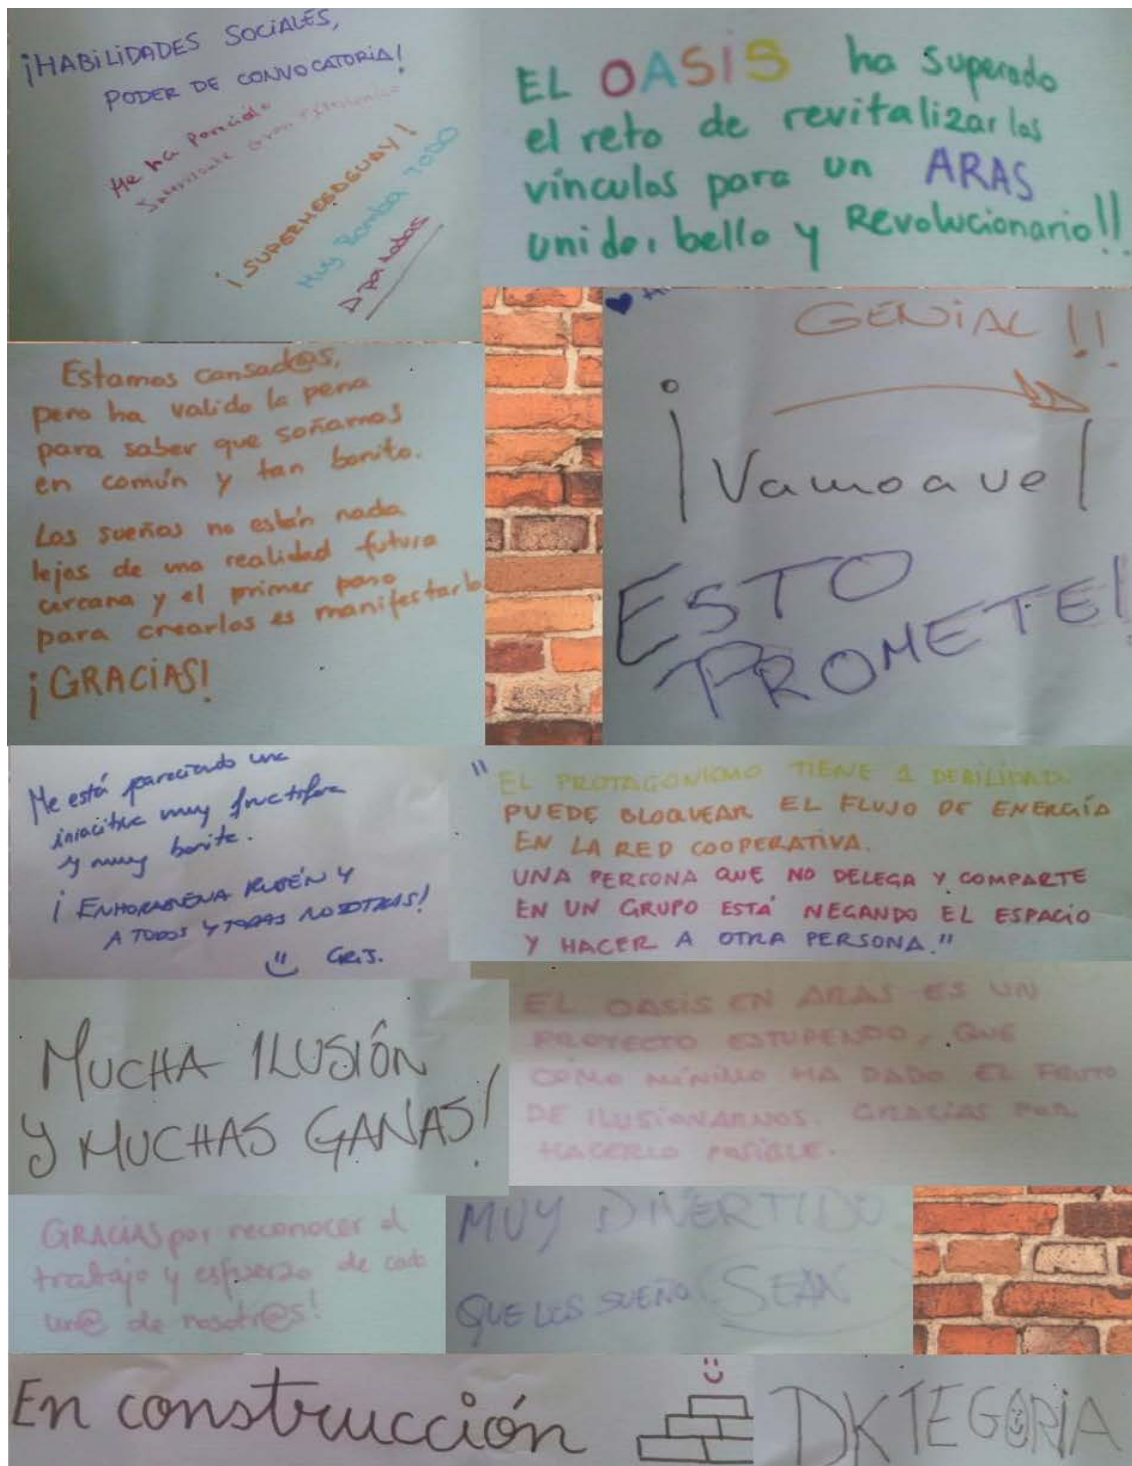 ¡HABILIDADES SOCIALES,
PODER DE CONVOCATORIA!
Me ha parecido
Interesante Gran
¡SUPERMEGAGUAY!
Muy Bomba TODO
EL OASIS ha superado
el reto de revitalizar los
vínculos para un ARAS
unido, bello y Revolucionario!!
Estamos cansad@s,
pero ha valido la pena
para saber que soñamos
en común y tan bonito.
Los sueños no están nada
lejos de una realidad futura
cercana y el primer paso
para crearlos es manifestarlo
¡GRACIAS!
GENIAL!!
¡Vamoave!
ESTO
PROMETE!
Me está pareciendo una
iniacitiva muy fructifera
y muy bonita.
¡ENHORABUENA RUBÉN Y
A TODOS Y TODAS NOSOTRAS!
Gris.
"EL PROTAGONISMO TIENE 1 DEBILIDAD
PUEDE BLOQUEAR EL FLUJO DE ENERGÍA
EN LA RED COOPERATIVA.
UNA PERSONA QUE NO DELEGA Y COMPARTE
EN UN GRUPO ESTÁ NEGANDO EL ESPACIO
Y HACER A OTRA PERSONA."
MUCHA ILUSIÓN
Y MUCHAS GANAS!
EL OASIS EN ARAS ES UN
PROYECTO ESTUPENDO, QUE
COMO MÍNIMO HA DADO EL FRUTO
DE ILUSIONARNOS. GRACIAS POR
HACERLO POSIBLE.
GRACIAS por reconocer el
trabajo y esfuerzo de cada
un@ de nosotr@s!
MUY DIVERTIDO
QUE LOS SUEÑO SEAN
En construcción
DKTEGORIA